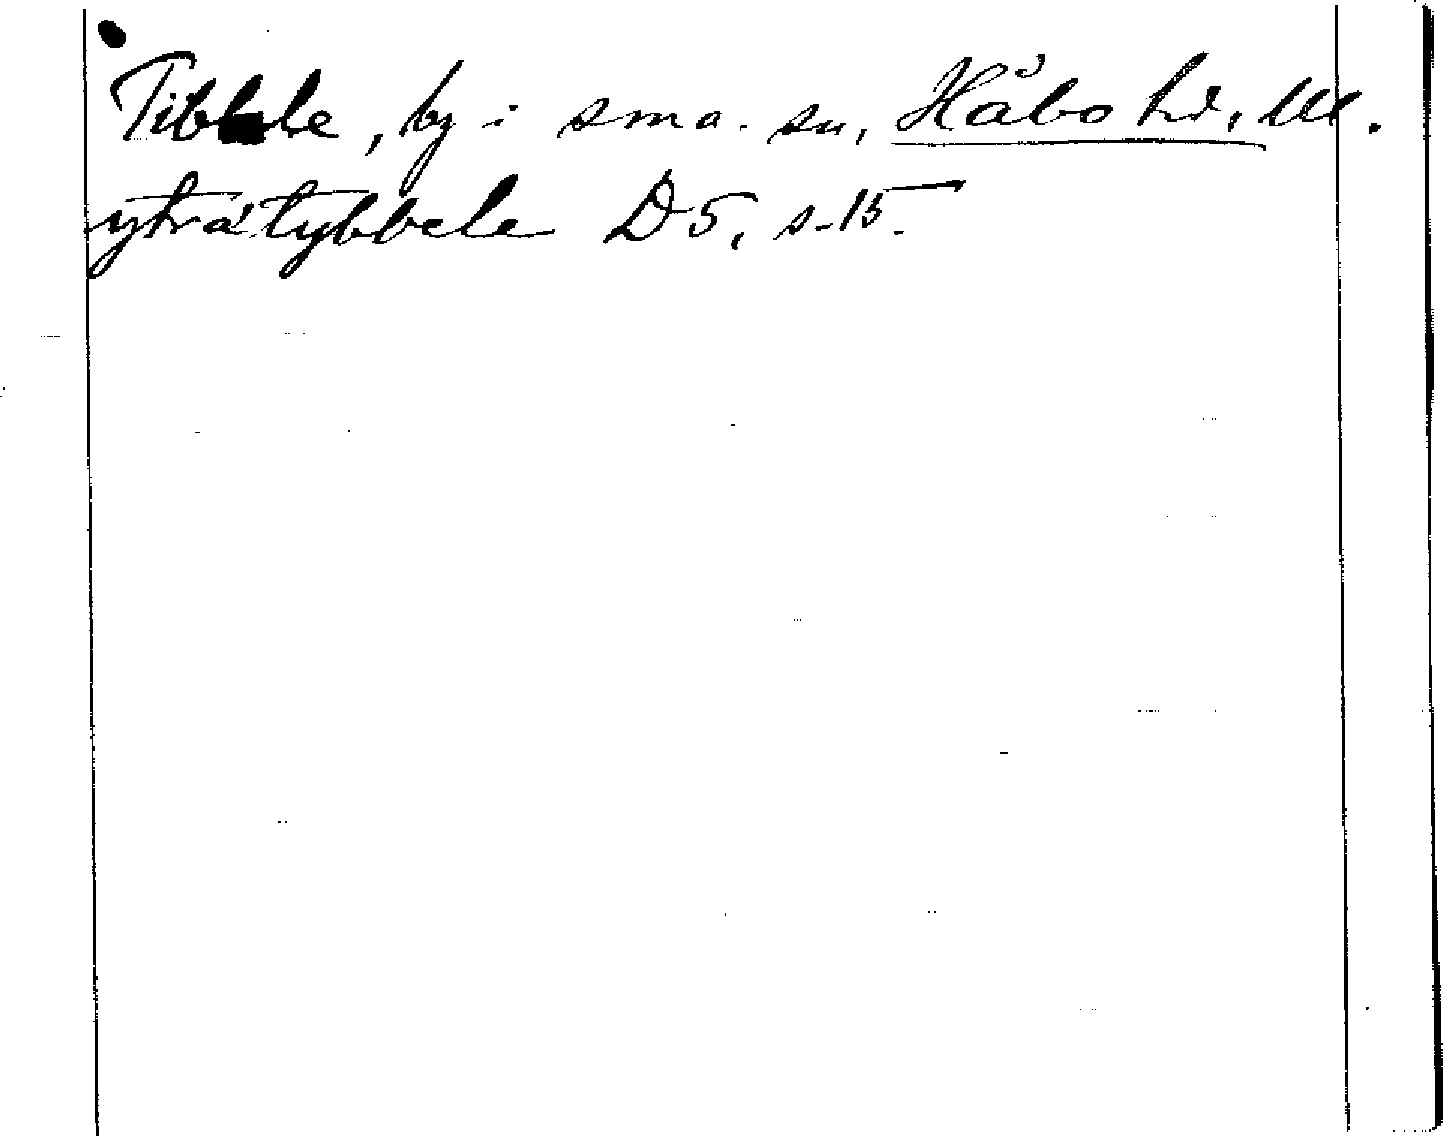 Tibble, by i sma. sn, Håbo hd, Ul.
ytratybbele D5, s. 15.